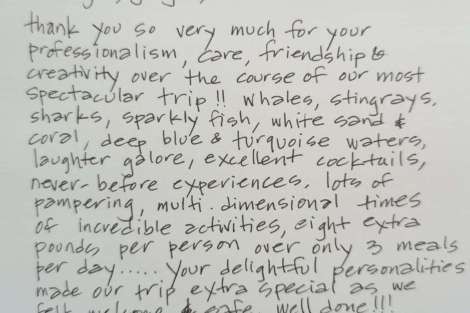 thank you so very much for your
professionalism, care, friendship &
creativity over the course of our most
spectacular trip!! whales, stingrays,
sharks, sparkly fish, white sand &
coral, deep blue & turquoise waters,
laughter galore, excellent cocktails,
never-before experiences. lots of
pampering, multi-dimensional times
of incredible activities, eight extra
pounds per person over only 3 meals
per day..... your delightful personalities
made our trip extra special as we
felt welcome & safe. well done!!!